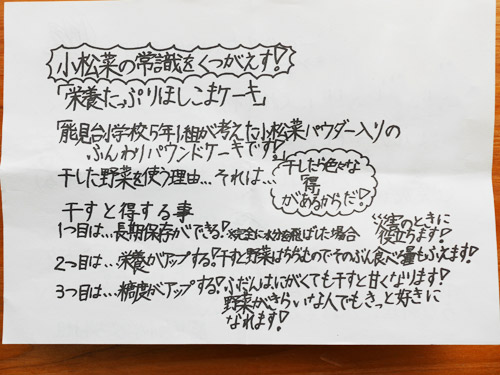 小松菜の常識をくつがえす!
「栄養たっぷりほしこまケーキ」
「能見台小学校5年1組が考えた小松菜パウダー入りの
ふんわりパウンドケーキです!」
干した野菜を使う理由…それは…
干したら色々な
「得」
があるからだ!
干すと得する事
1つ目は…長期保存ができる!※完全に水分を飛ばした場合
災害のときに
役立ちます!
2つ目は…栄養がアップする!干すと野菜はちぢむのでそのぶん食べる量もふえます!
3つ目は…糖度がアップする!ふだんはにがくても干すと甘くなります!
野菜がきらいな人でもきっと好きに
なれます!